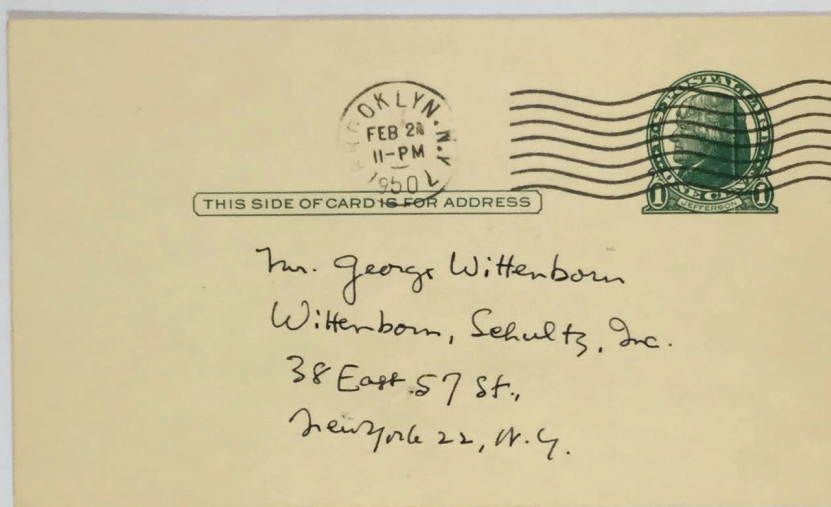 BROOKLYN. N.Y.
FEB 2
11-PM
1950
U.S. POSTAL CARD
ONE CENT
1 JEFFERSON 1
THIS SIDE OF CARD IS FOR ADDRESS
Mr. George Wittenborn
Wittenborn, Schultz, Inc.
38 East 57 St.,
New York 22, N.Y.